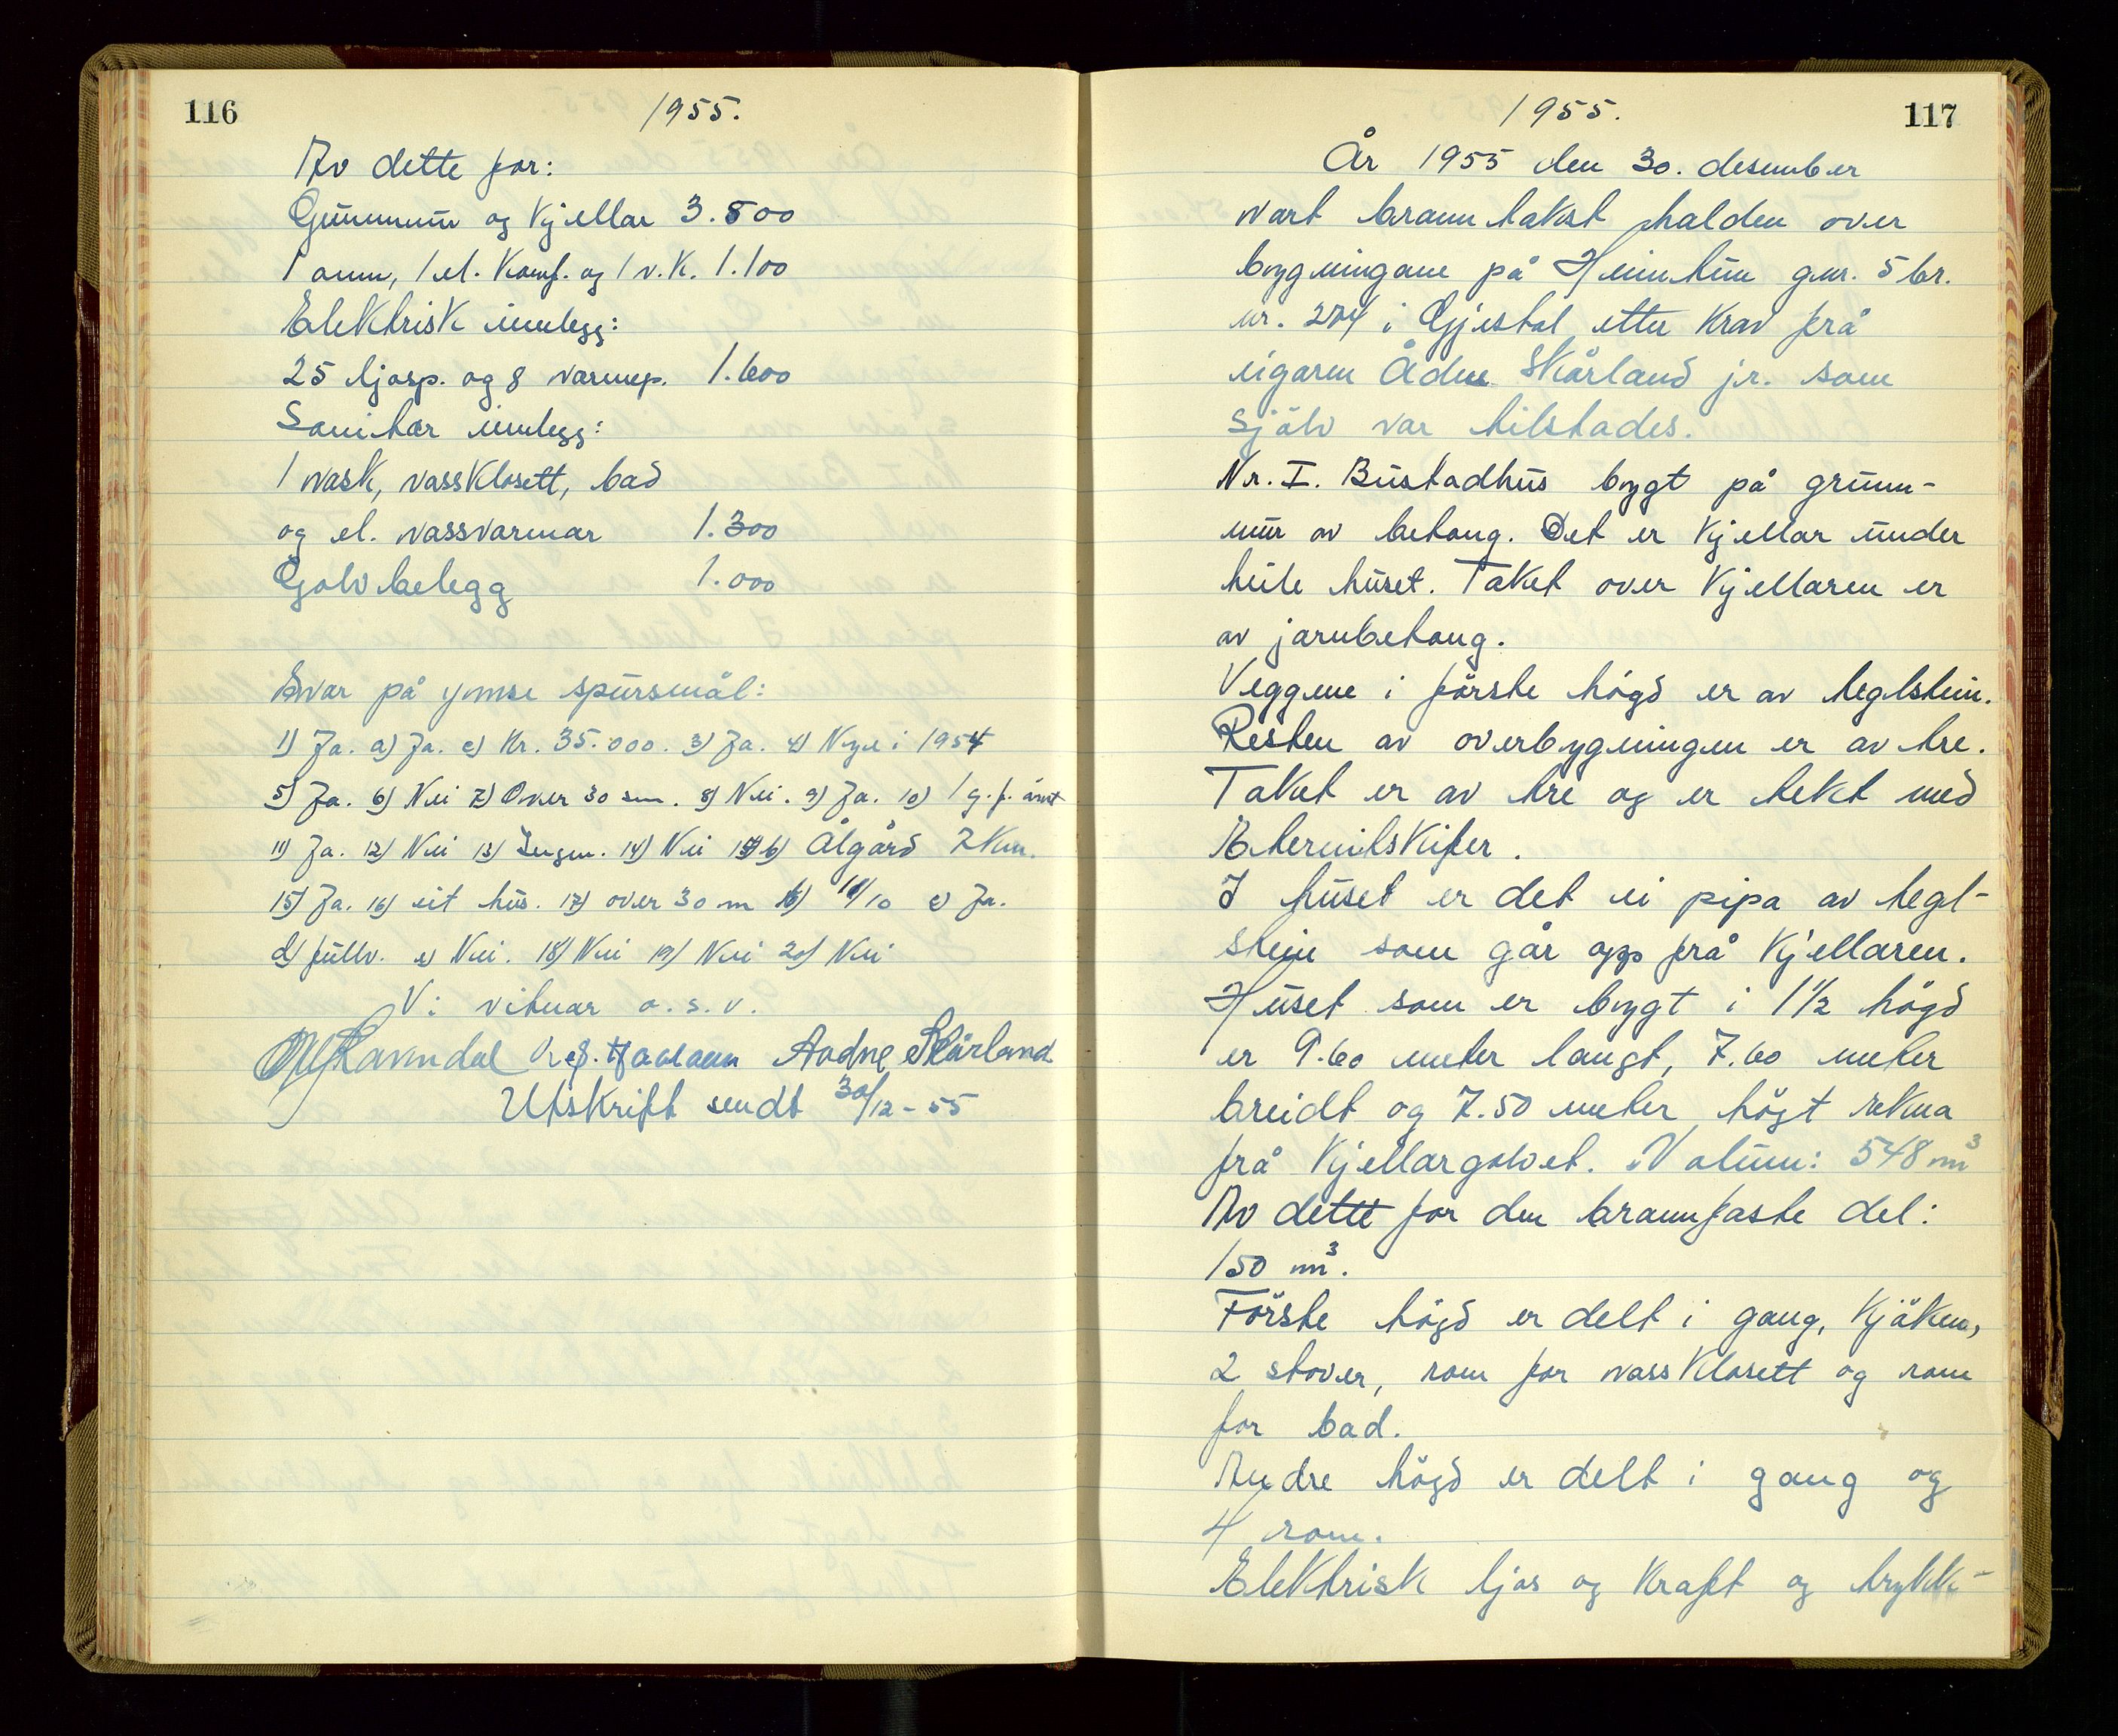 116
1955.
Av dette for:
Grunnmur og Kjellar 3.800
1 omn, 1 el. Komf. og 1 v.K. 1.100
Elektrisk innlegg:
25 ljosp. og 8 varmep. 1.600
Sanitær innlegg:
1 vask, vassklosett, bad
og el. vassvarmar 1.300
Golvbelegg 1.000
Svar på ymse spursmål:
1) Ja. a) Ja. c) Kr. 35.000. 3) Ja. 4) Nye i 1954
5) Ja. 6) Nei 7) Over 30 sm. 8) Nei. 9) Ja. 10) 1 g. p. året
11) Ja. 12) Nei 13) Ingen. 14) Nei b) Ålgård 7 Km.
15) Ja. 16) eit hus. 17) over 30 m b) 10 c) Ja.
d) fullv. e) Nei. 18) Nei 19) Nei 20) Nei
V: vitnar o.s.v.
Ravndal Aadne Skårland
Utskrift sendt 30/12-55
1955.
117
År 1955 den 30. desember
vart branntakst halden over
bygningane på Heimtun gnr. 5 br.
nr. 204 i Gjestal etter krav frå
eigaren Ådne Skårland jr. som
sjölv var tilstades.
Nr. I. Bustadhus bygt på grunn-
mur av betong. Det er Kjellar under
heile huset. Taket over Kjellaren er
av jarnbetong.
Veggene i förste högd er av teglstein.
Resten av overbygningen er av tre.
Taket er av tre og er tekt med
Eternitskifer.
I huset er det ei pipa av tegl-
stein som går opp frå Kjellaren.
Huset som er bygt i 1 1/2 högd
er 9.60 meter langt, 7.60 meter
breidt og 7.50 meter högt rekna
frå Kjellargolvet. Volum: 548 m³
Av dette for den brannfaste del:
150 m³.
Förste högd er delt i gang, Kjöken,
2 stover, rom for vassklosett og rom
for bad.
Andre högd er delt i gang og
4 rom.
Elektrisk ljos og Kraft og trykk-